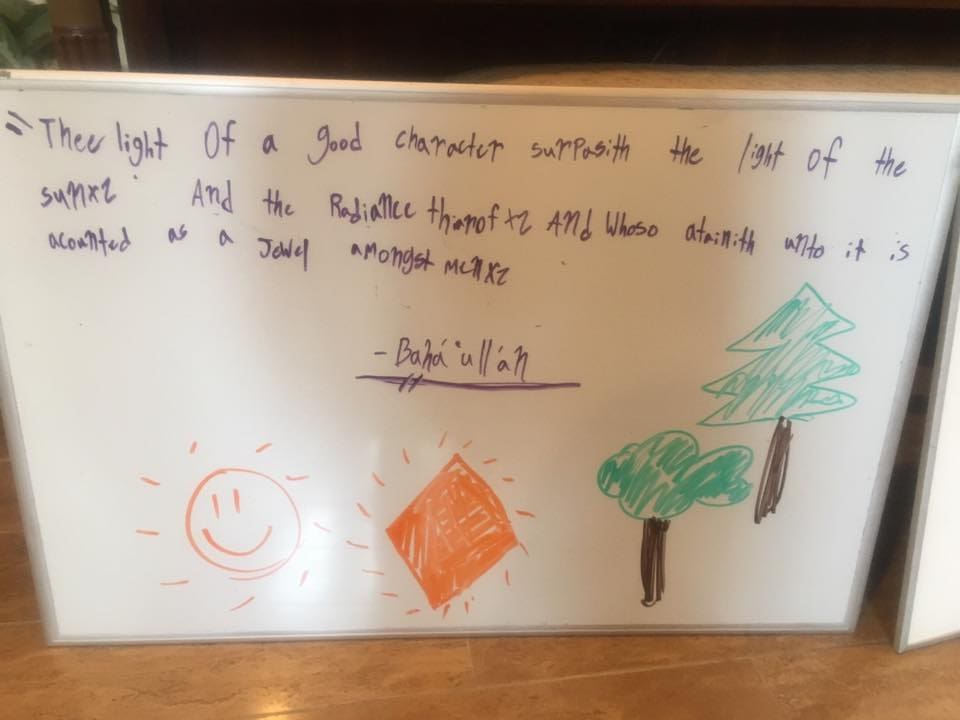 " Thee light Of a good character surpasith the light of the
sunx2 And the Radiance thianof x2 And Whoso atainith unto it is
acounted as a Jewel amongst menx2
- Bahá'ulláh